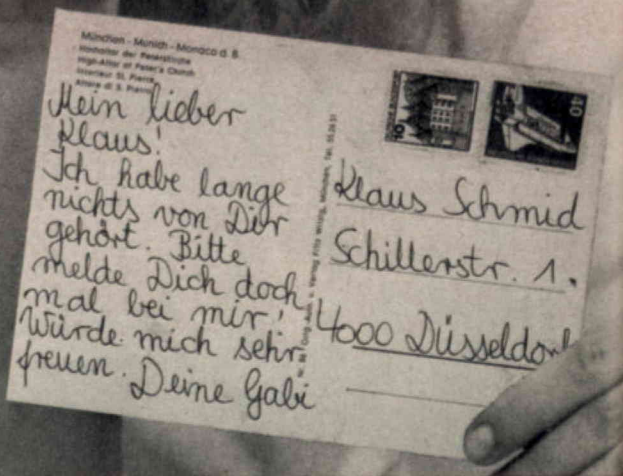 München - Munich - Monaco d. B.
Hochaltar der Peterskirche
High-Altar of Peter's Church
Interieur St. Pierre
Mein lieber
Klaus!
Ich habe lange
nichts von Dir
gehört. Bitte
melde Dich doch
mal bei mir!
Würde mich sehr
freuen. Deine Gabi
10
40
Klaus Schmid
Schillerstr. 1.
4000 Düsseldorf